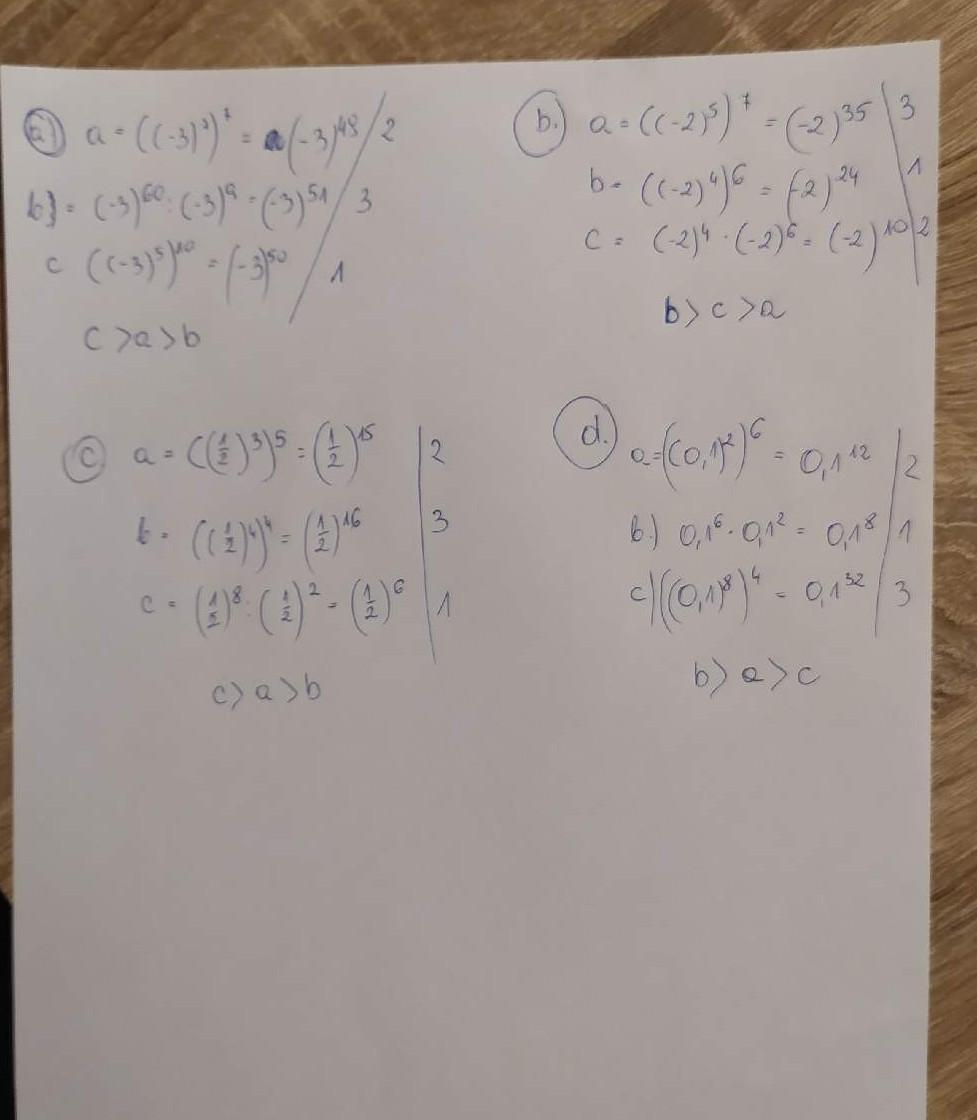 a) a = ((-3)⁷)⁷ = (-3)⁴⁸ / 2
b) = (-3)⁶⁰ : (-3)⁹ = (-3)⁵¹ / 3
c ((-3)⁵)¹⁰ = (-3)⁵⁰ / 1
c > a > b
b. a = ((-2)⁵)⁷ = (-2)³⁵ | 3
b = ((-2)⁴)⁶ = (-2)²⁴ | 1
c = (-2)⁴ · (-2)⁶ = (-2)¹⁰ | 2
b > c > a
c a = ((1/2)³)⁵ = (1/2)¹⁵ | 2
b = ((1/2)⁴)⁴ = (1/2)¹⁶ | 3
c = (1/2)⁸ : (1/2)² = (1/2)⁶ | 1
c > a > b
d. a = ((0,1)²)⁶ = 0,1¹² | 2
b.) 0,1⁶ · 0,1² = 0,1⁸ | 1
c) ((0,1)⁸)⁴ = 0,1³² | 3
b > a > c